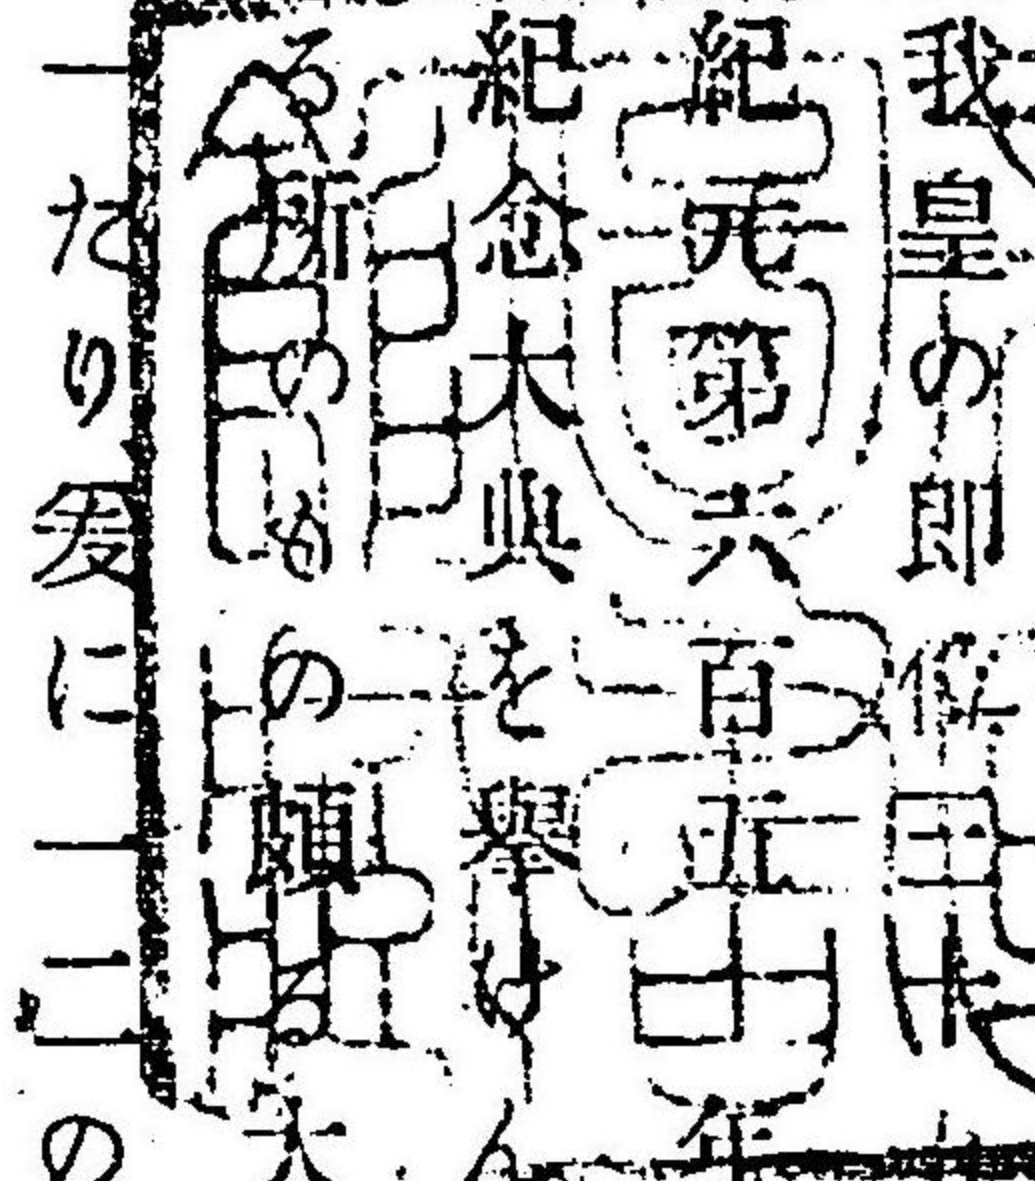 我皇の即位十
紀元第六百五十年
紀念大典を擧けん
る所のもの頗る大
一たり爰に一二の